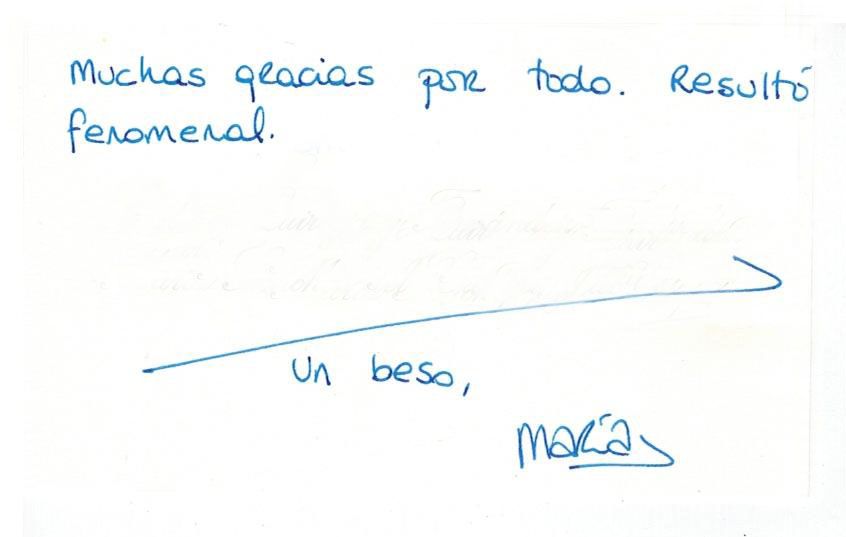 Muchas gracias por todo. Resultó
fenomenal.
Un beso,
María